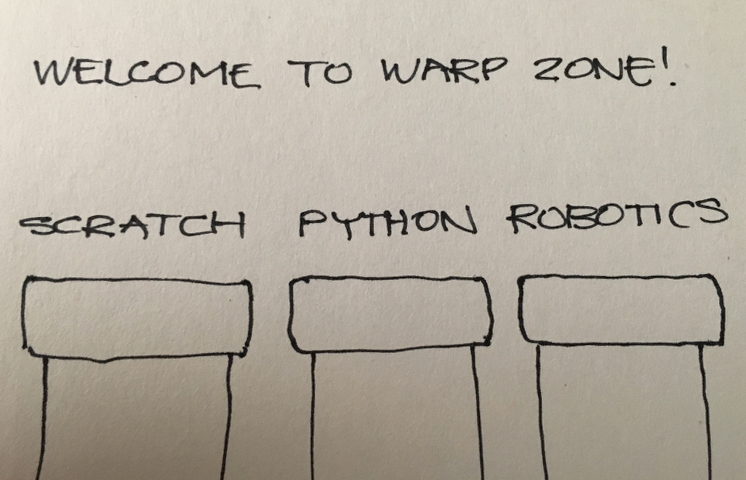 WELCOME TO WARP ZONE!
SCRATCH PYTHON ROBOTICS